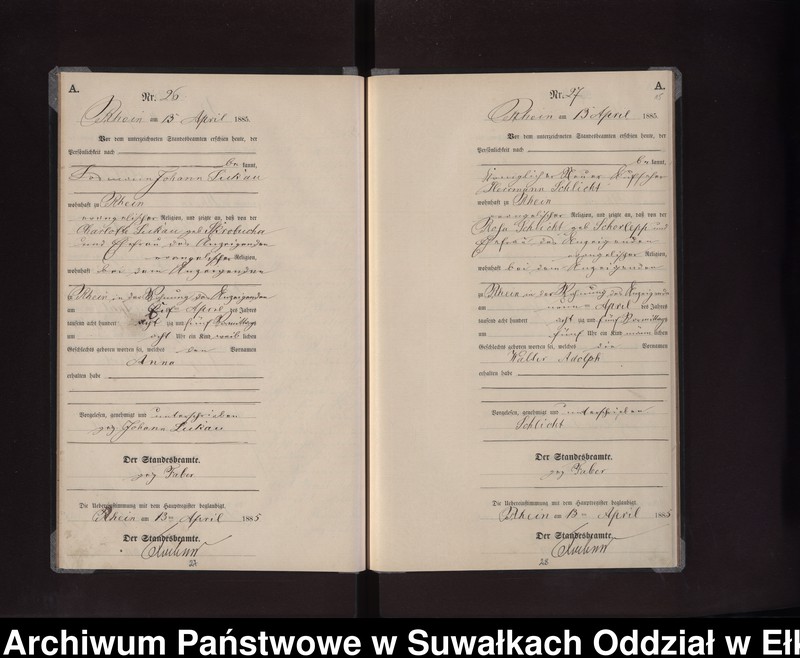 A.
Nr. 26.
Rhein am 13 April 1885.
Vor dem unterzeichneten Standesbeamten erschien heute, der
Persönlichkeit nach
be kannt,
Johann Luckau
wohnhaft zu Rhein
evangelischer Religion, und zeigte an, daß von der
Charlotte Luckau geb
Ehefrau des Anzeigenden
evangelischer Religion,
wohnhaft bei dem Anzeigenden
zu Rhein in der Wohnung des Anzeigenden
am April des Jahres
tausend acht hundert acht zig und fünf Vormittags
um acht Uhr ein Kind weib lichen
Geschlechts geboren worden sei, welches den Vornamen
Anna
erhalten habe
Vorgelesen, genehmigt und unterschrieben
gez Johann Luckau
Der Standesbeamte.
gez Faber
Die Uebereinstimmung mit dem Hauptregister beglaubigt.
Rhein am 13 April 1885
Der Standesbeamte.
27
A.
Nr. 27
Rhein am 13 April 1885.
Vor dem unterzeichneten Standesbeamten erschien heute, der
Persönlichkeit nach
be kannt,
Königlicher
Herrmann Schlicht
wohnhaft zu Rhein
evangelischer Religion, und zeigte an, daß von der
Rosa Schlicht geb und
Ehefrau des Anzeigenden
evangelischer Religion,
wohnhaft bei dem Anzeigenden
zu Rhein in der Wohnung des Anzeigenden
am neun April des Jahres
tausend acht hundert acht zig und fünf Vormittags
um fünf Uhr ein Kind männ lichen
Geschlechts geboren worden sei, welches die Vornamen
Walter Adolph
erhalten habe
Vorgelesen, genehmigt und unterschrieben
Schlicht
Der Standesbeamte.
gez Faber
Die Uebereinstimmung mit dem Hauptregister beglaubigt.
Rhein am 13 April 1885
Der Standesbeamte.
28
Archiwum Państwowe w Suwałkach Oddział w Ełk